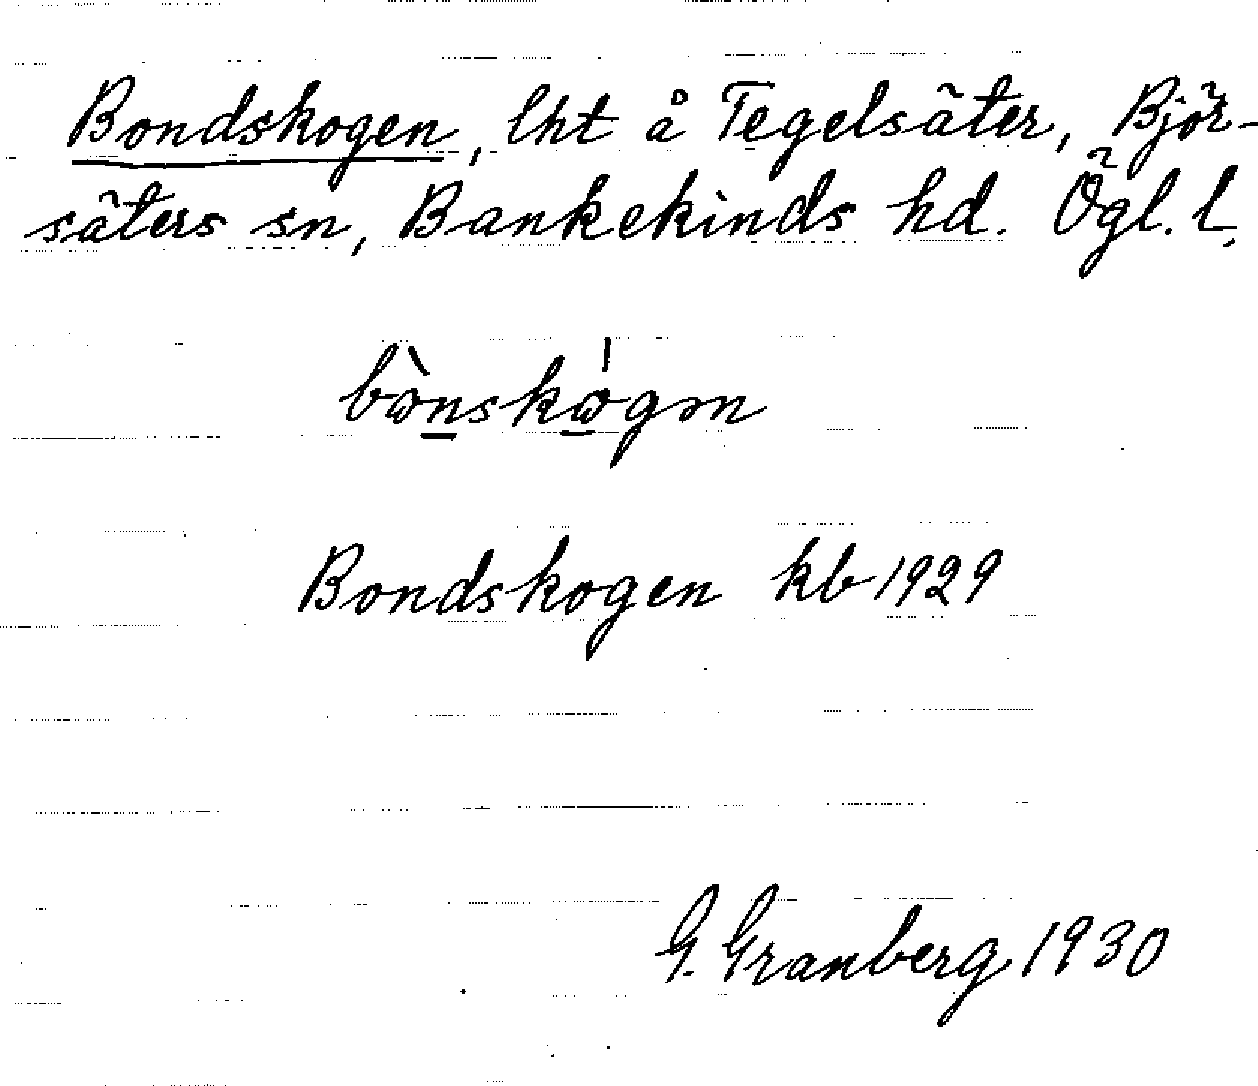 Bondskogen, lht å Tegelsäter, Björ-
säters sn, Bankekinds hd. Ögl. l.
bònskógən
Bondskogen kb 1929
G. Granberg 1930